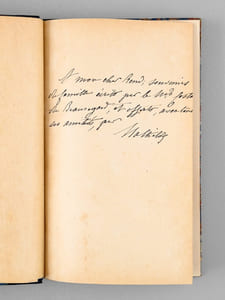 A mon cher René, souvenirs
de famille écrits par le Mis Costa
de Beauregard, et offerts, avec toutes
ses amitiés, par
Mathilde